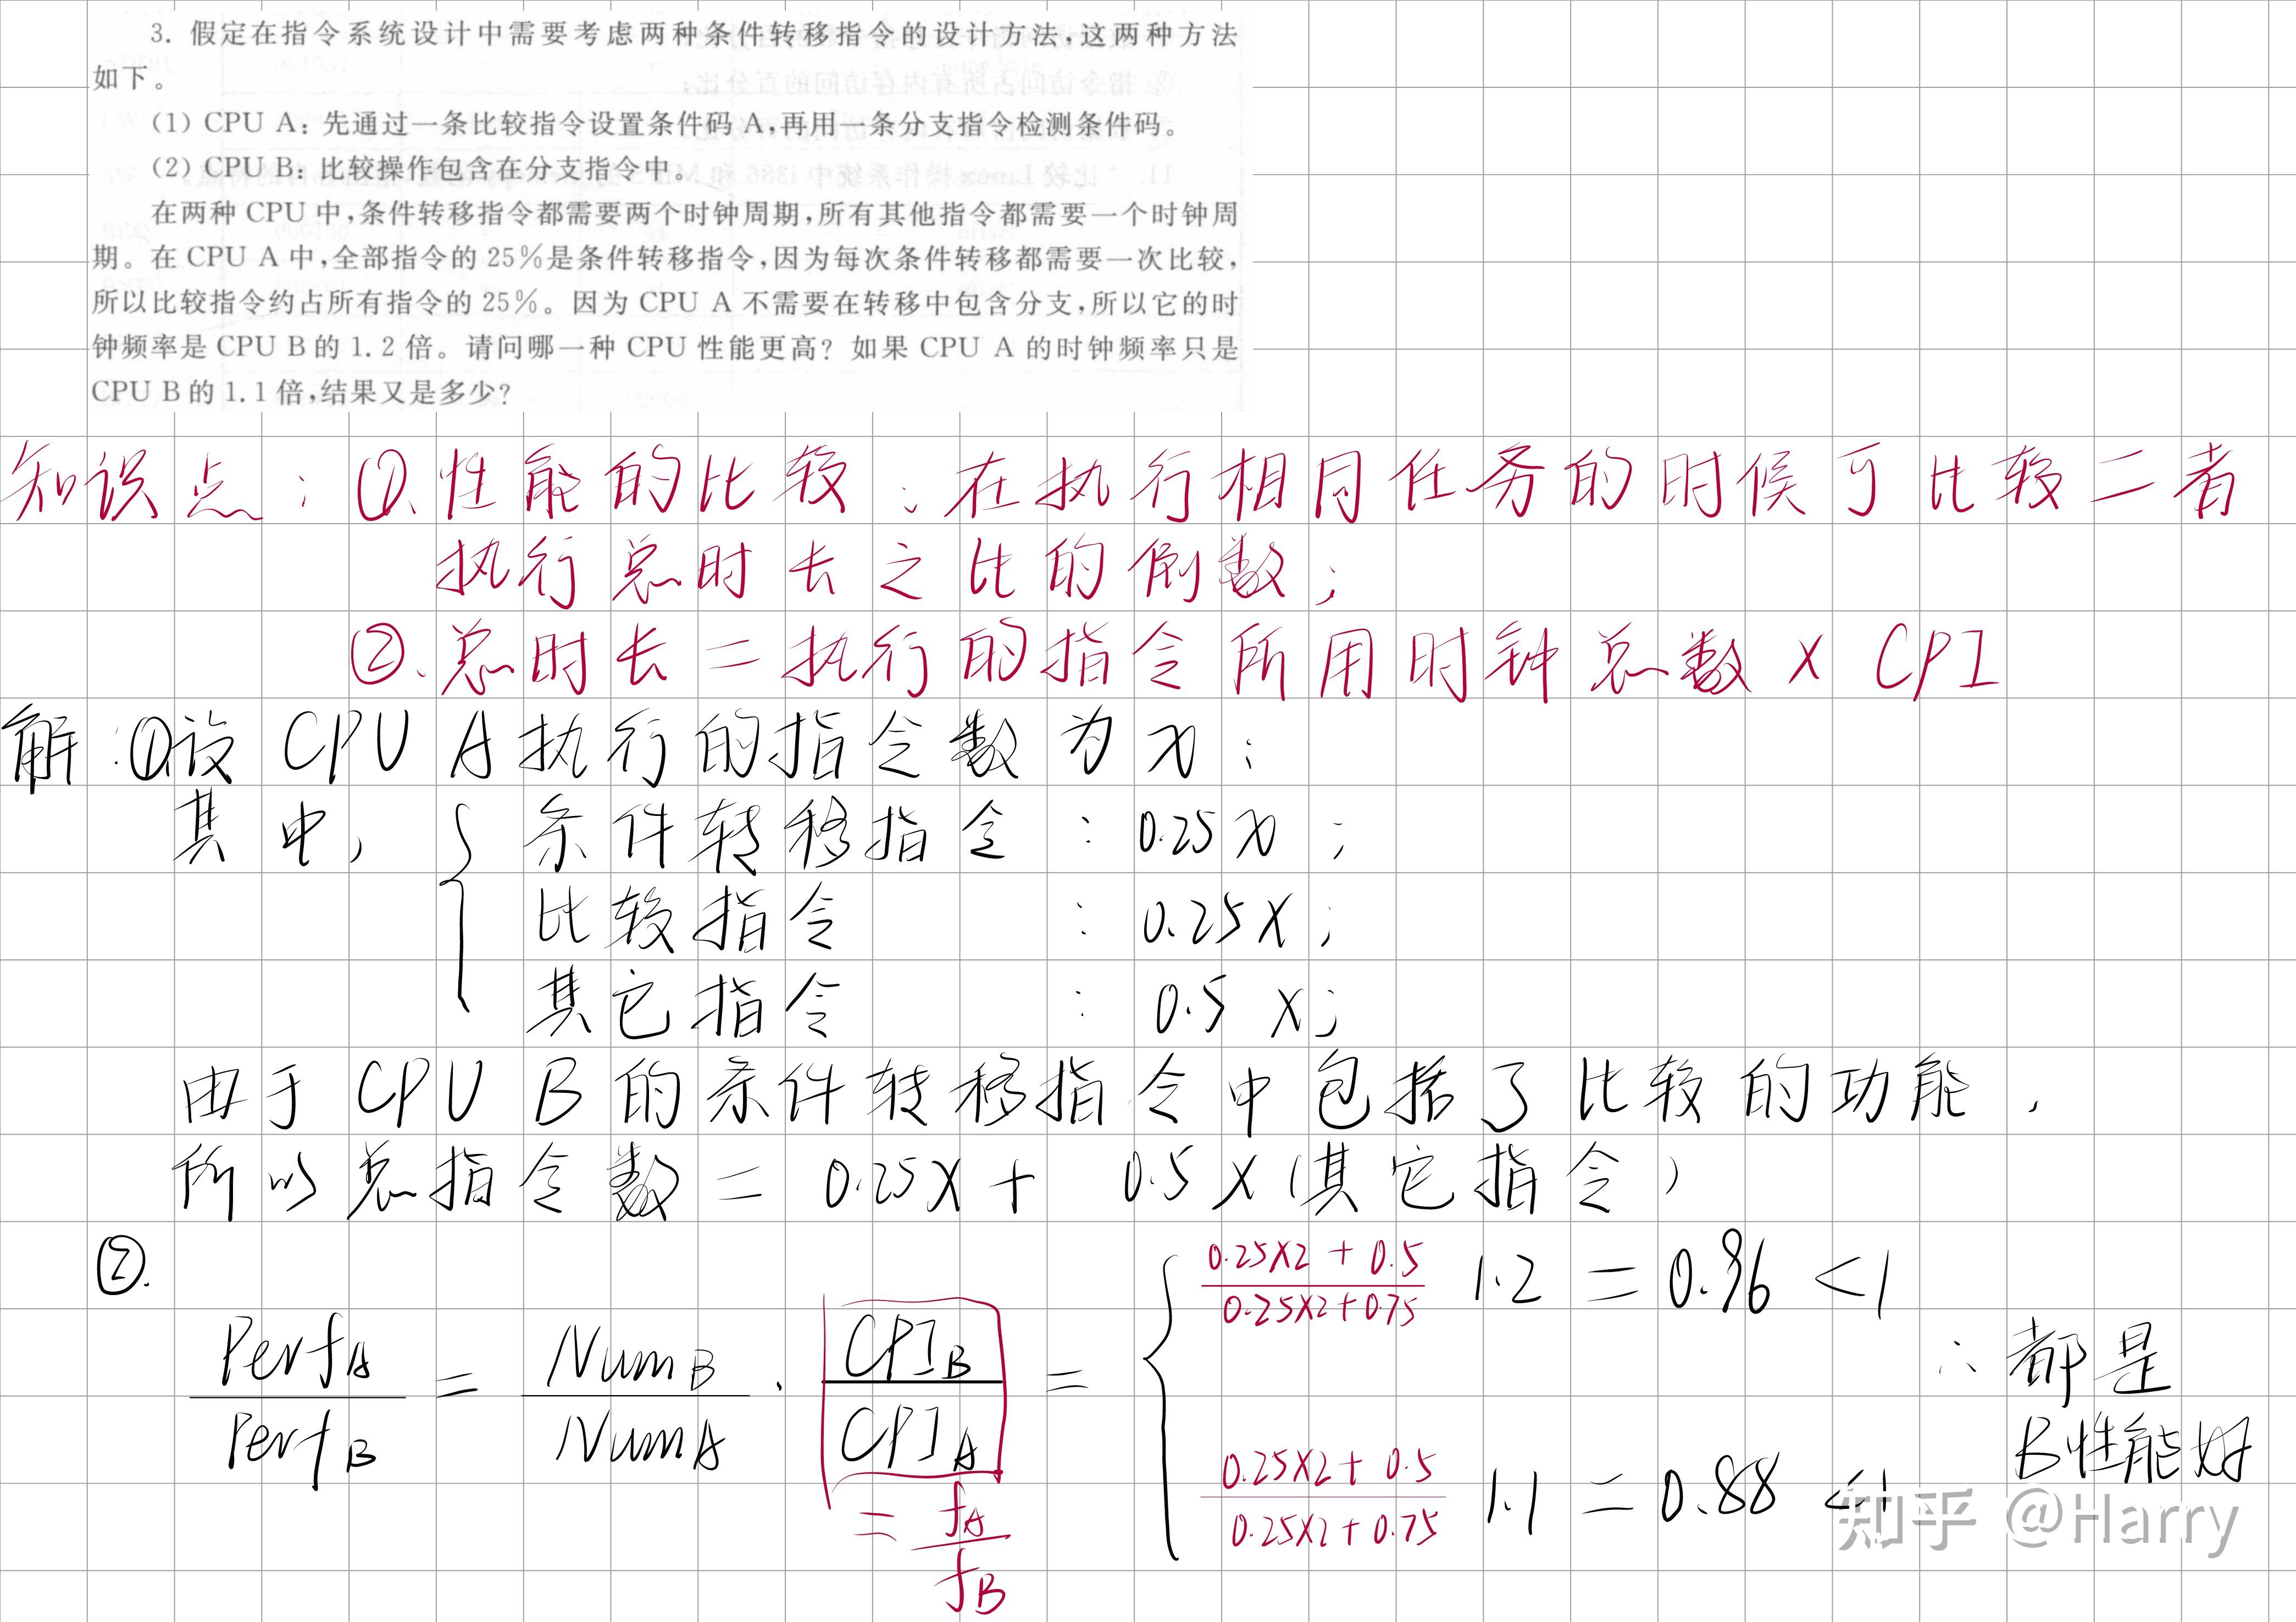 3. 假定在指令系统设计中需要考虑两种条件转移指令的设计方法,这两种方法
如下。
(1) CPU A: 先通过一条比较指令设置条件码 A,再用一条分支指令检测条件码。
(2) CPU B: 比较操作包含在分支指令中。
在两种 CPU 中,条件转移指令都需要两个时钟周期,所有其他指令都需要一个时钟周
期。在 CPU A 中,全部指令的 25%是条件转移指令,因为每次条件转移都需要一次比较,
所以比较指令约占所有指令的 25%。因为 CPU A 不需要在转移中包含分支,所以它的时
钟频率是 CPU B 的 1.2 倍。请问哪一种 CPU 性能更高? 如果 CPU A 的时钟频率只是
CPU B 的 1.1 倍,结果又是多少?
知识点:①.性能的比较:在执行相同任务的时候可比较二者
执行总时长之比的倒数;
②.总时长=执行的指令所用时钟总数×CPI
解:①设 CPU A执行的指令数为x:
其中,{条件转移指令:0.25x;
比较指令:0.25x;
其它指令:0.5x;
由于CPU B的条件转移指令中包括了比较的功能,
所以总指令数=0.25x+0.5x(其它指令)
②.
PerfA/PerfB = NumB/NumA · CPIB/CPIA = {
= fA/fB
(0.25×2+0.5)/(0.25×2+0.75) 1.2=0.96<1
(0.25×2+0.5)/(0.25×2+0.75) 1.1=0.88<1
∴都是
B性能好
知乎 @Harry